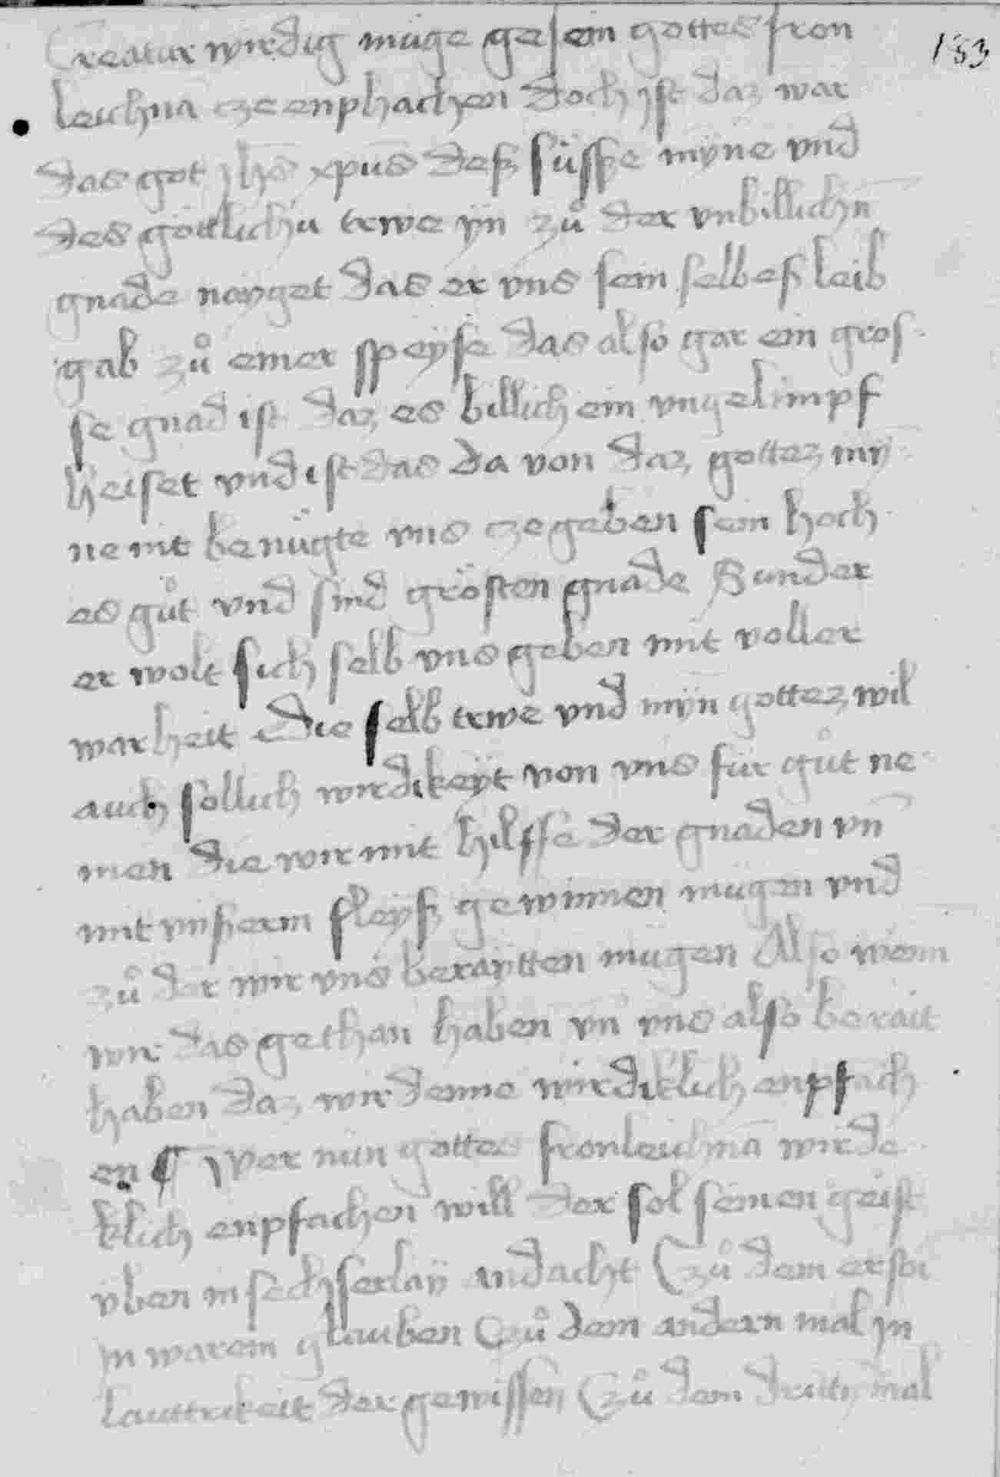 Creatur wirdig müge gesein gottes fron
183
leichnā ze enphachen doch ist daz war
das got ihs xpūs deß süsse myne vnd
des götlichn trwe yn zů der vnbillichn
gnade nayget das er vns sein selbes leib
gab zů einer speyse das also gar ein gros
se gnad ist daz es billich ein vngelimpf
heiset vnd ist das da von daz gottez mȳ
ne nit benügte vns ze geben sein hoch
es gůt vnd sind grösten gnade Sunder
er wolt sich selb vns geben mit voller
warheit Die selb trwe vnd myn gottez wil
auch sollich wirdikeyt von vns für gůt ne
men die wir mit hilffe der gnaden vn̄
mit vnserm fleyß gewinnen mügen vnd
zů der wir vns beraytten mügen Also wenn
wir das gethan haben vn̄ vns also berait
haben daz wir denne wirdiklich enpfach
en ¶ Wer nun gottes fronleichnā wirde
klich enpfachen will der sol seinen geist
vben in sechserlay andacht Czů dem ersten
in warem glauben Czů dem andern mal in
lauttrikeit der gewissen Czů dem dritn mal